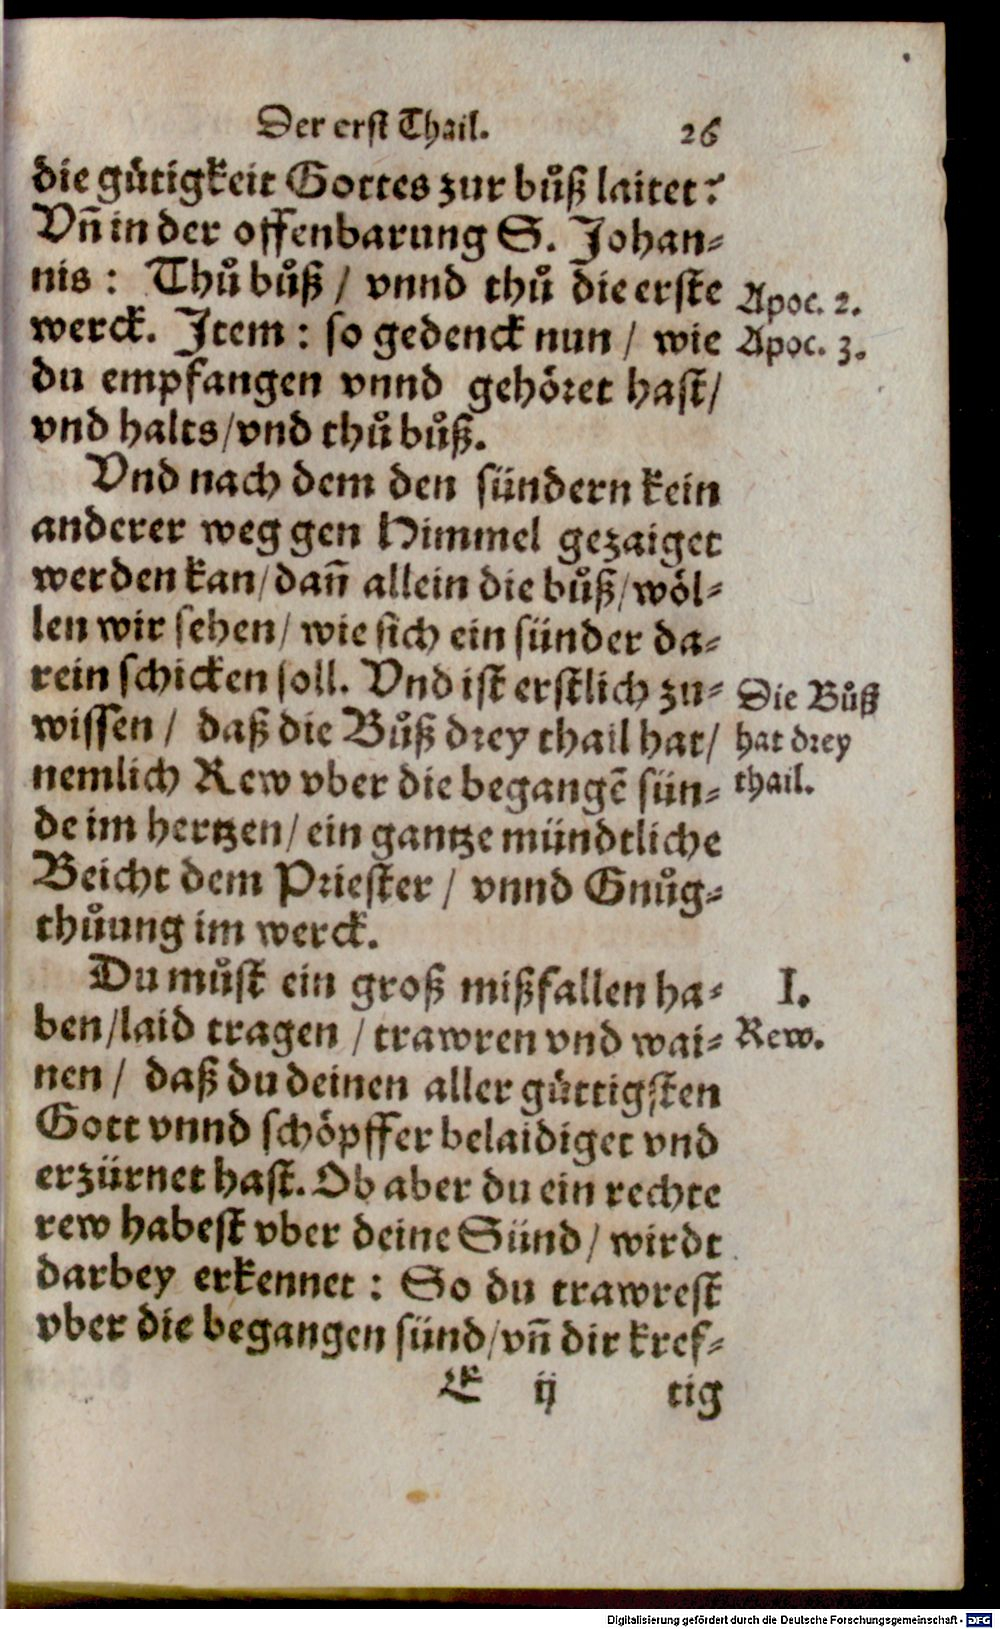 Der erst Thail. 26
die gütigkeit Gottes zur bůß laitet?
Vñ in der offenbarung S. Johan-
nis: Thů bůß / vnnd thů die erste
Apoc. 2.
werck. Item: so gedenck nun / wie
Apoc. 3.
du empfangen vnnd gehöret hast/
vnd halts/vnd thů bůß.
Vnd nach dem den sündern kein
anderer weg gen Himmel gezaiget
werden kan/dañ allein die bůß/wöl-
len wir sehen/ wie sich ein sünder da-
rein schicken soll. Vnd ist erstlich zu-
wissen / daß die Bůß drey thail hat/
nemlich Rew vber die begangē sün-
Die Bůß
hat drey
thail.
de im hertzen/ ein gantze mündtliche
Beicht dem Priester / vnnd Gnůg-
thůung im werck.
Du můst ein groß mißfallen ha-
I.
ben/laid tragen / trawren vnd wai-
Rew.
nen / daß du deinen aller güttigsten
Gott vnnd schöpffer belaidiget vnd
erzürnet hast. Ob aber du ein rechte
rew habest vber deine Sünd / wirdt
darbey erkennet: So du trawrest
vber die begangen sünd/vñ dir kref-
E ij tig
Digitalisierung gefördert durch die Deutsche Forschungsgemeinschaft - DFG